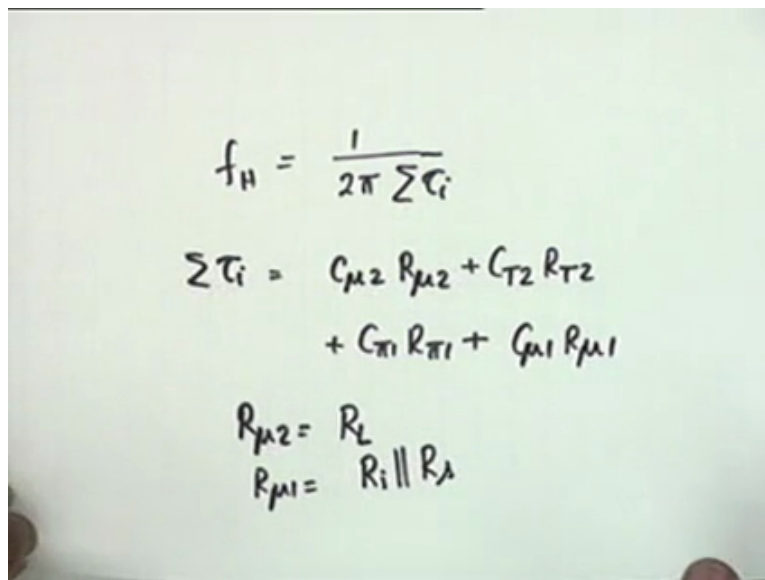 f_H = 1 / 2π Σ τ_i
Σ τ_i = C_μ2 R_μ2 + C_T2 R_T2
+ C_π1 R_π1 + C_μ1 R_μ1
R_μ2 = R_L
R_μ1 = R_i || R_s